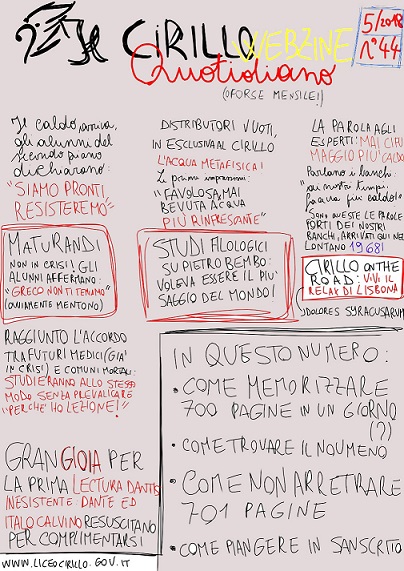 Il CIRILLO WEBZINE
Quotidiano
(O FORSE MENSILE!)
5/2018
n°44
Il caldo arriva,
gli alunni del
secondo piano
dichiarano:
"SIAMO PRONTI,
RESISTEREMO"
DISTRIBUTORI VUOTI,
IN ESCLUSIVA AL CIRILLO
L'ACQUA METAFISICA!
Le prime impressioni:
"FAVOLOSA, MAI
BEVUTA ACQUA
PIÙ RINFRESANTE"
LA PAROLA AGLI
ESPERTI: MAI CI FU
MAGGIO PIÙ CALDO
Parlano i banchi:
"ai nostri tempi
faceva più caldo!"
SONO QUESTE LE PAROLE
FORTI DEI NOSTRI
BANCHI, ARRIVATI QUI NEL
LONTANO 1968!
MATURANDI
NON IN CRISI! GLI
ALUNNI AFFERMANO:
"GRECO NON TI TEMIAMO"
(OVVIAMENTE MENTONO)
STUDI FILOLOGICI
SU PIETRO BEMBO:
VOLEVA ESSERE IL PIU'
SAGGIO DEL MONDO!
CIRILLO ON THE
ROAD: VIVI IL
RELAX DI LISBONA
DOLORES SYRACUSARUM
RAGGIUNTO L'ACCORDO
TRA FUTURI MEDICI (GIA'
IN CRISI) E COMUNI MORTALI:
STUDIERANNO ALLO STESSO
MODO SENZA PREVALICARE
"PERCHE' HO LEZIONE!"
GRAN GIOIA PER
LA PRIMA LECTURA DANTIS
INESISTENTE: DANTE ED
ITALO CALVINO RESUSCITANO
PER COMPLIMENTARSI
WWW.LICEOCIRILLO.GOV.IT
IN QUESTO NUMERO:
• COME MEMORIZZARE
700 PAGINE IN UN GIORNO
(?)
• COME TROVARE IL NOUMENO
• COME NON ARRETRARE
701 PAGINE
• COME PIANGERE IN SANSCRITO